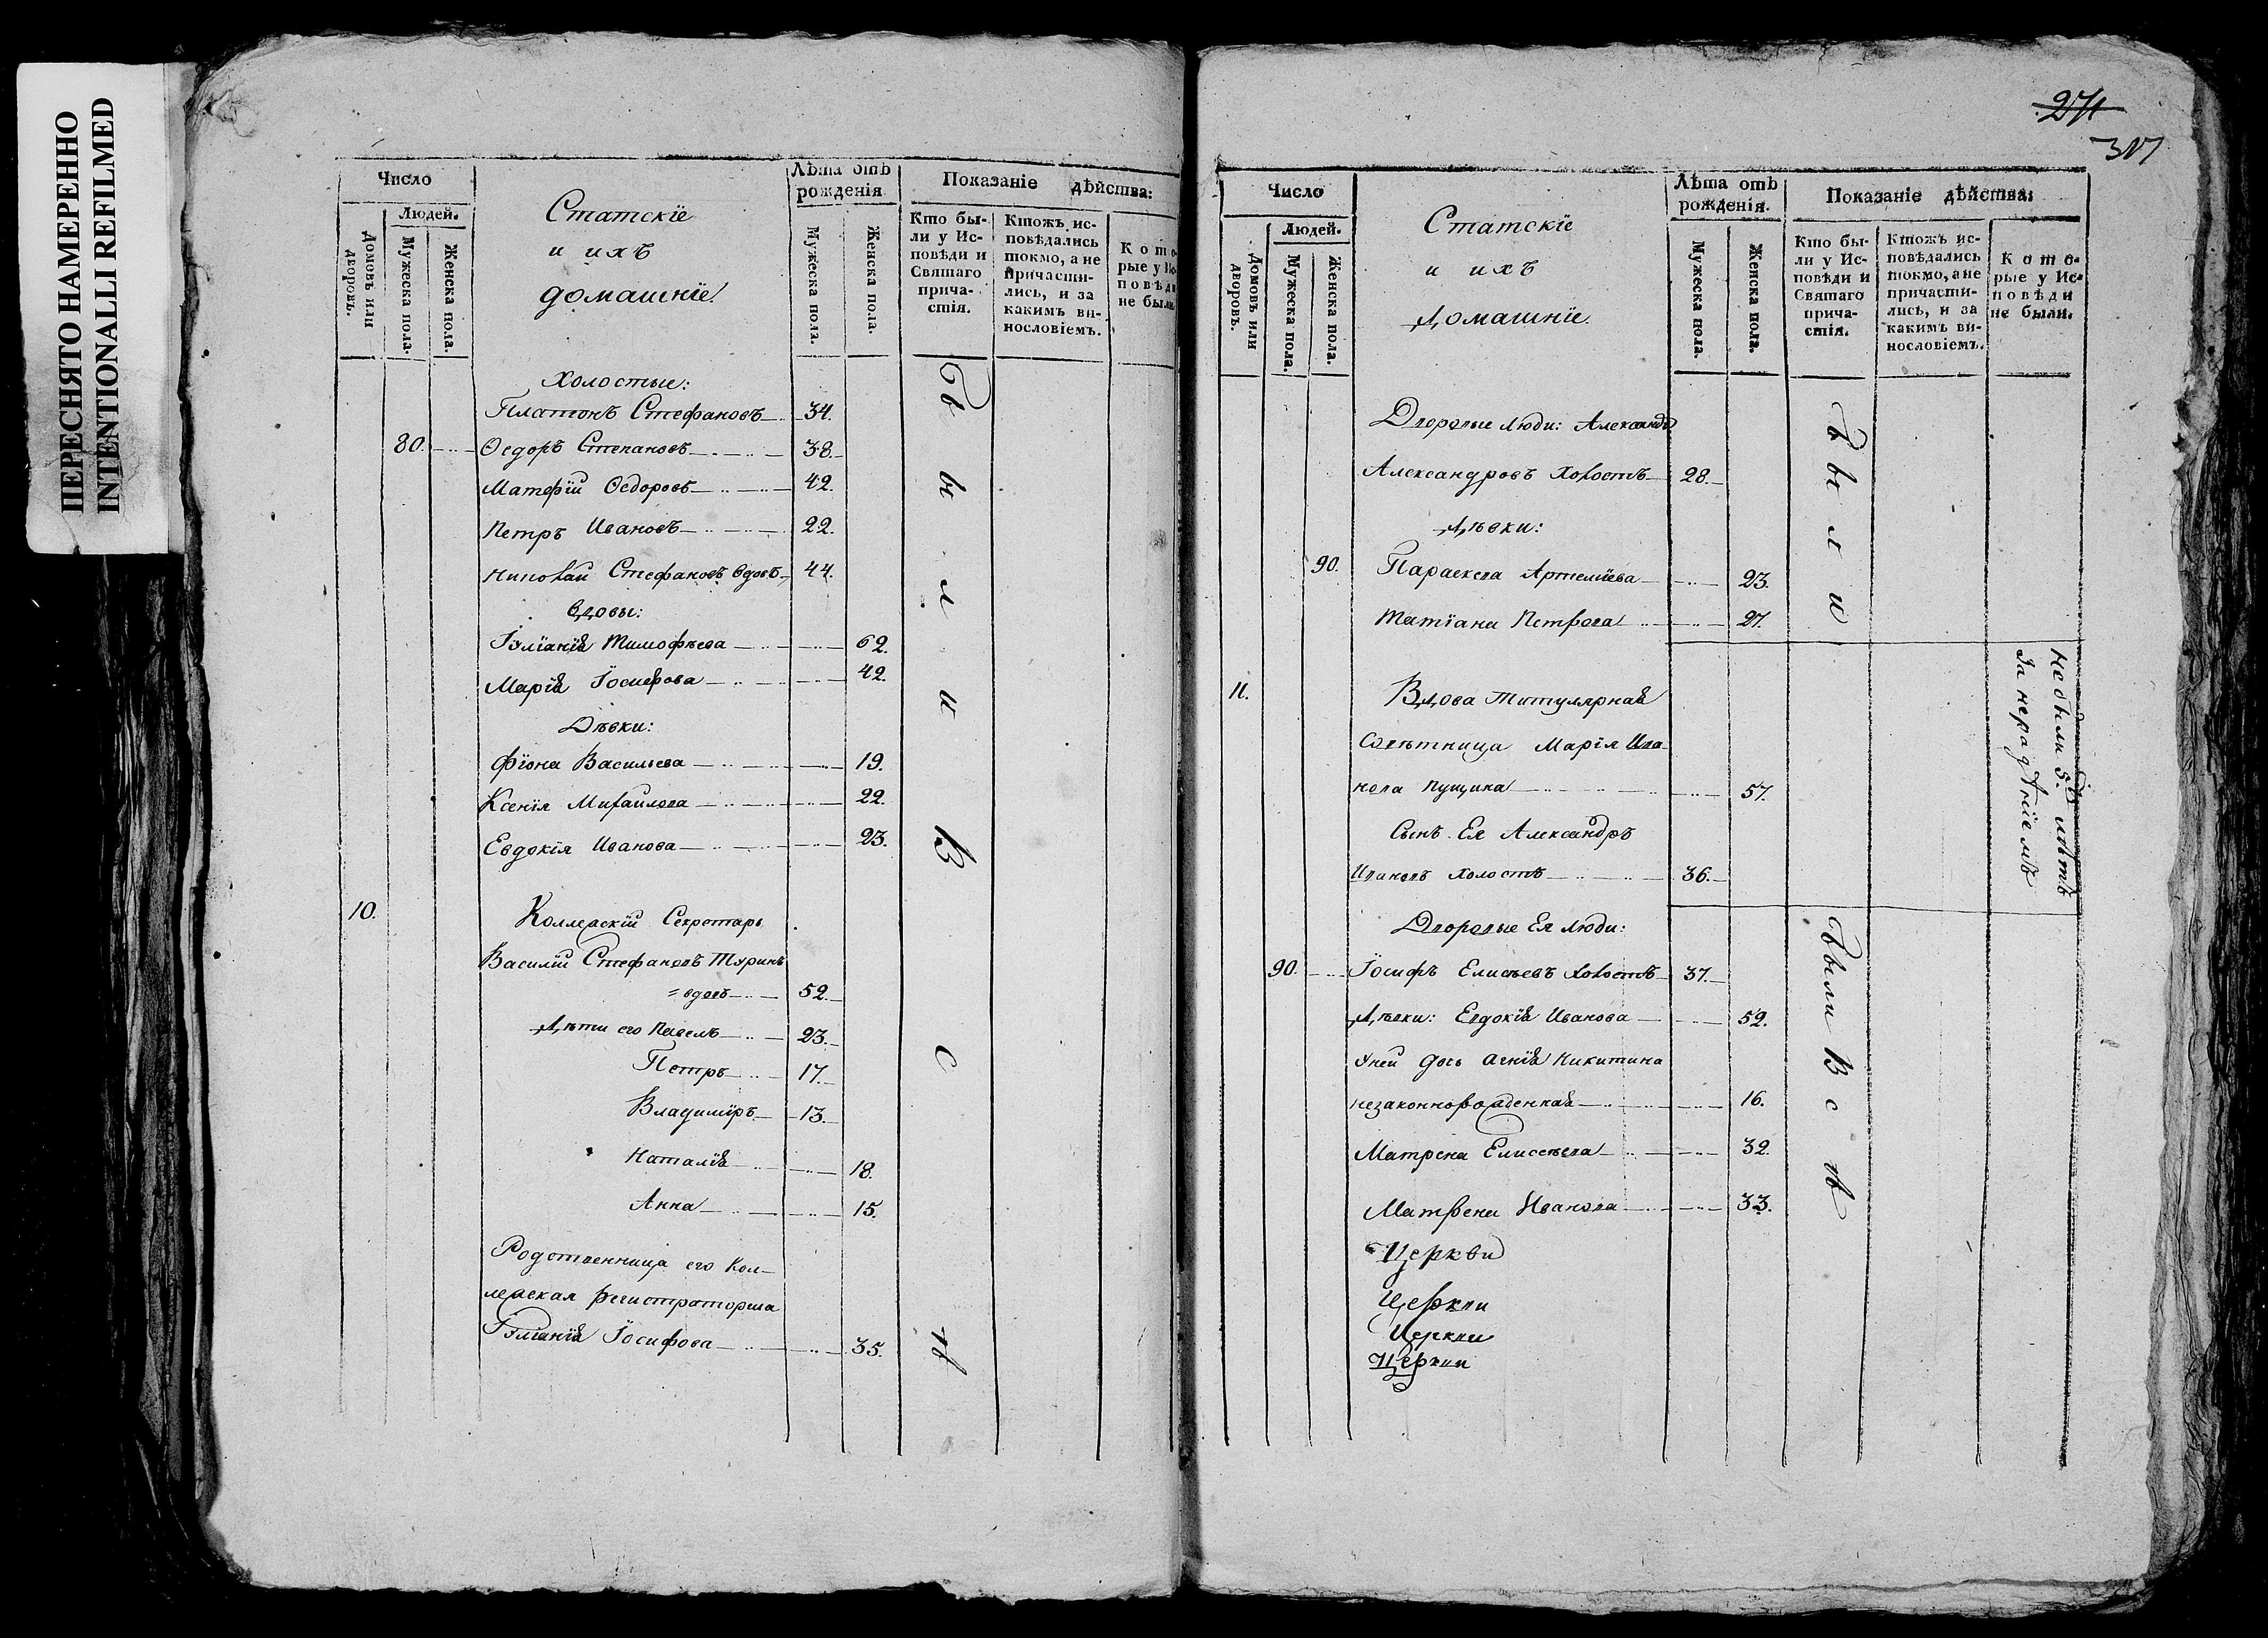 ПЕРЕСНЯТО НАМЕРЕННО
INTENTIONALLI REFILMED
Число
Людей.
Домовъ или дворовъ.
Мужеска пола.
Женска пола.
Статскіе
и ихъ
домашніе.
Лѣта отъ рожденія
Мужеска пола.
Женска пола.
Показаніе дѣйства:
Кто бы-
ли у Ис-
повѣди и
Святаго
прича-
стія.
Ктожъ ис-
повѣдались
токмо, а не
причасти-
лись, и за
какимъ ви-
нословіемъ.
Кото-
рые у Ис-
повѣди
не были.
Холостые:
Платонъ Стефановъ 34.
80. Ѳедоръ Степановъ 38.
Матфій Ѳедоровъ 42.
Петръ Ивановъ 22.
Николай Стефановъ вдовъ 44.
Вдовы:
Іуліанія Тимофѣева 62.
Марія Іосифова 42.
Дѣвки:
Фіона Васильева 19.
Ксенія Михайлова 22.
Евдокія Иванова 23.
10. Коллежскій Секретарь
Василій Стефановъ Туринъ
= вдовъ 52.
Дѣти его Павелъ 23.
Петръ 17.
Владиміръ 13.
Наталія 18.
Анна 15.
Родственница его Кол-
лежская регистраторша
Іуліанія Іосифова 35.
Были Всѣ
274
317
Число
Людей.
Домовъ или дворовъ.
Мужеска пола.
Женска пола.
Статскіе
и ихъ
Домашніе.
Лѣта отъ рожденія.
Мужеска пола.
Женска пола.
Показаніе дѣйства:
Кто бы-
ли у Ис-
повѣди и
Святаго
прича-
стія.
Ктожъ ис-
повѣдались
токмо, а не
причасти-
лись, и за
какимъ ви-
нословіемъ.
Кото-
рые у Ис-
повѣди
не были.
Дворовые люди: Александръ
Александровъ холостъ 28.
Дѣвки:
90. Параскева Артеміева 23.
Татіана Петрова 27.
Были
11. Вдова Титулярная
Совѣтница Марія Ива-
нова Пущина 57.
Сынъ Ея Александръ
Ивановъ холостъ 36.
не были 5. лѣтъ
За нерадѣніемъ
Дворовые Ея люди:
90. Іосифъ Елисѣевъ холостъ 37.
Дѣвки: Евдокія Иванова 52.
у ней дочь Агнія Никитина
незаконнорожденная 16.
Матрена Елисеѣва 32.
Матрена Иванова 33.
Были Всѣ
Церкви
Церкви
Церкви
Церкви